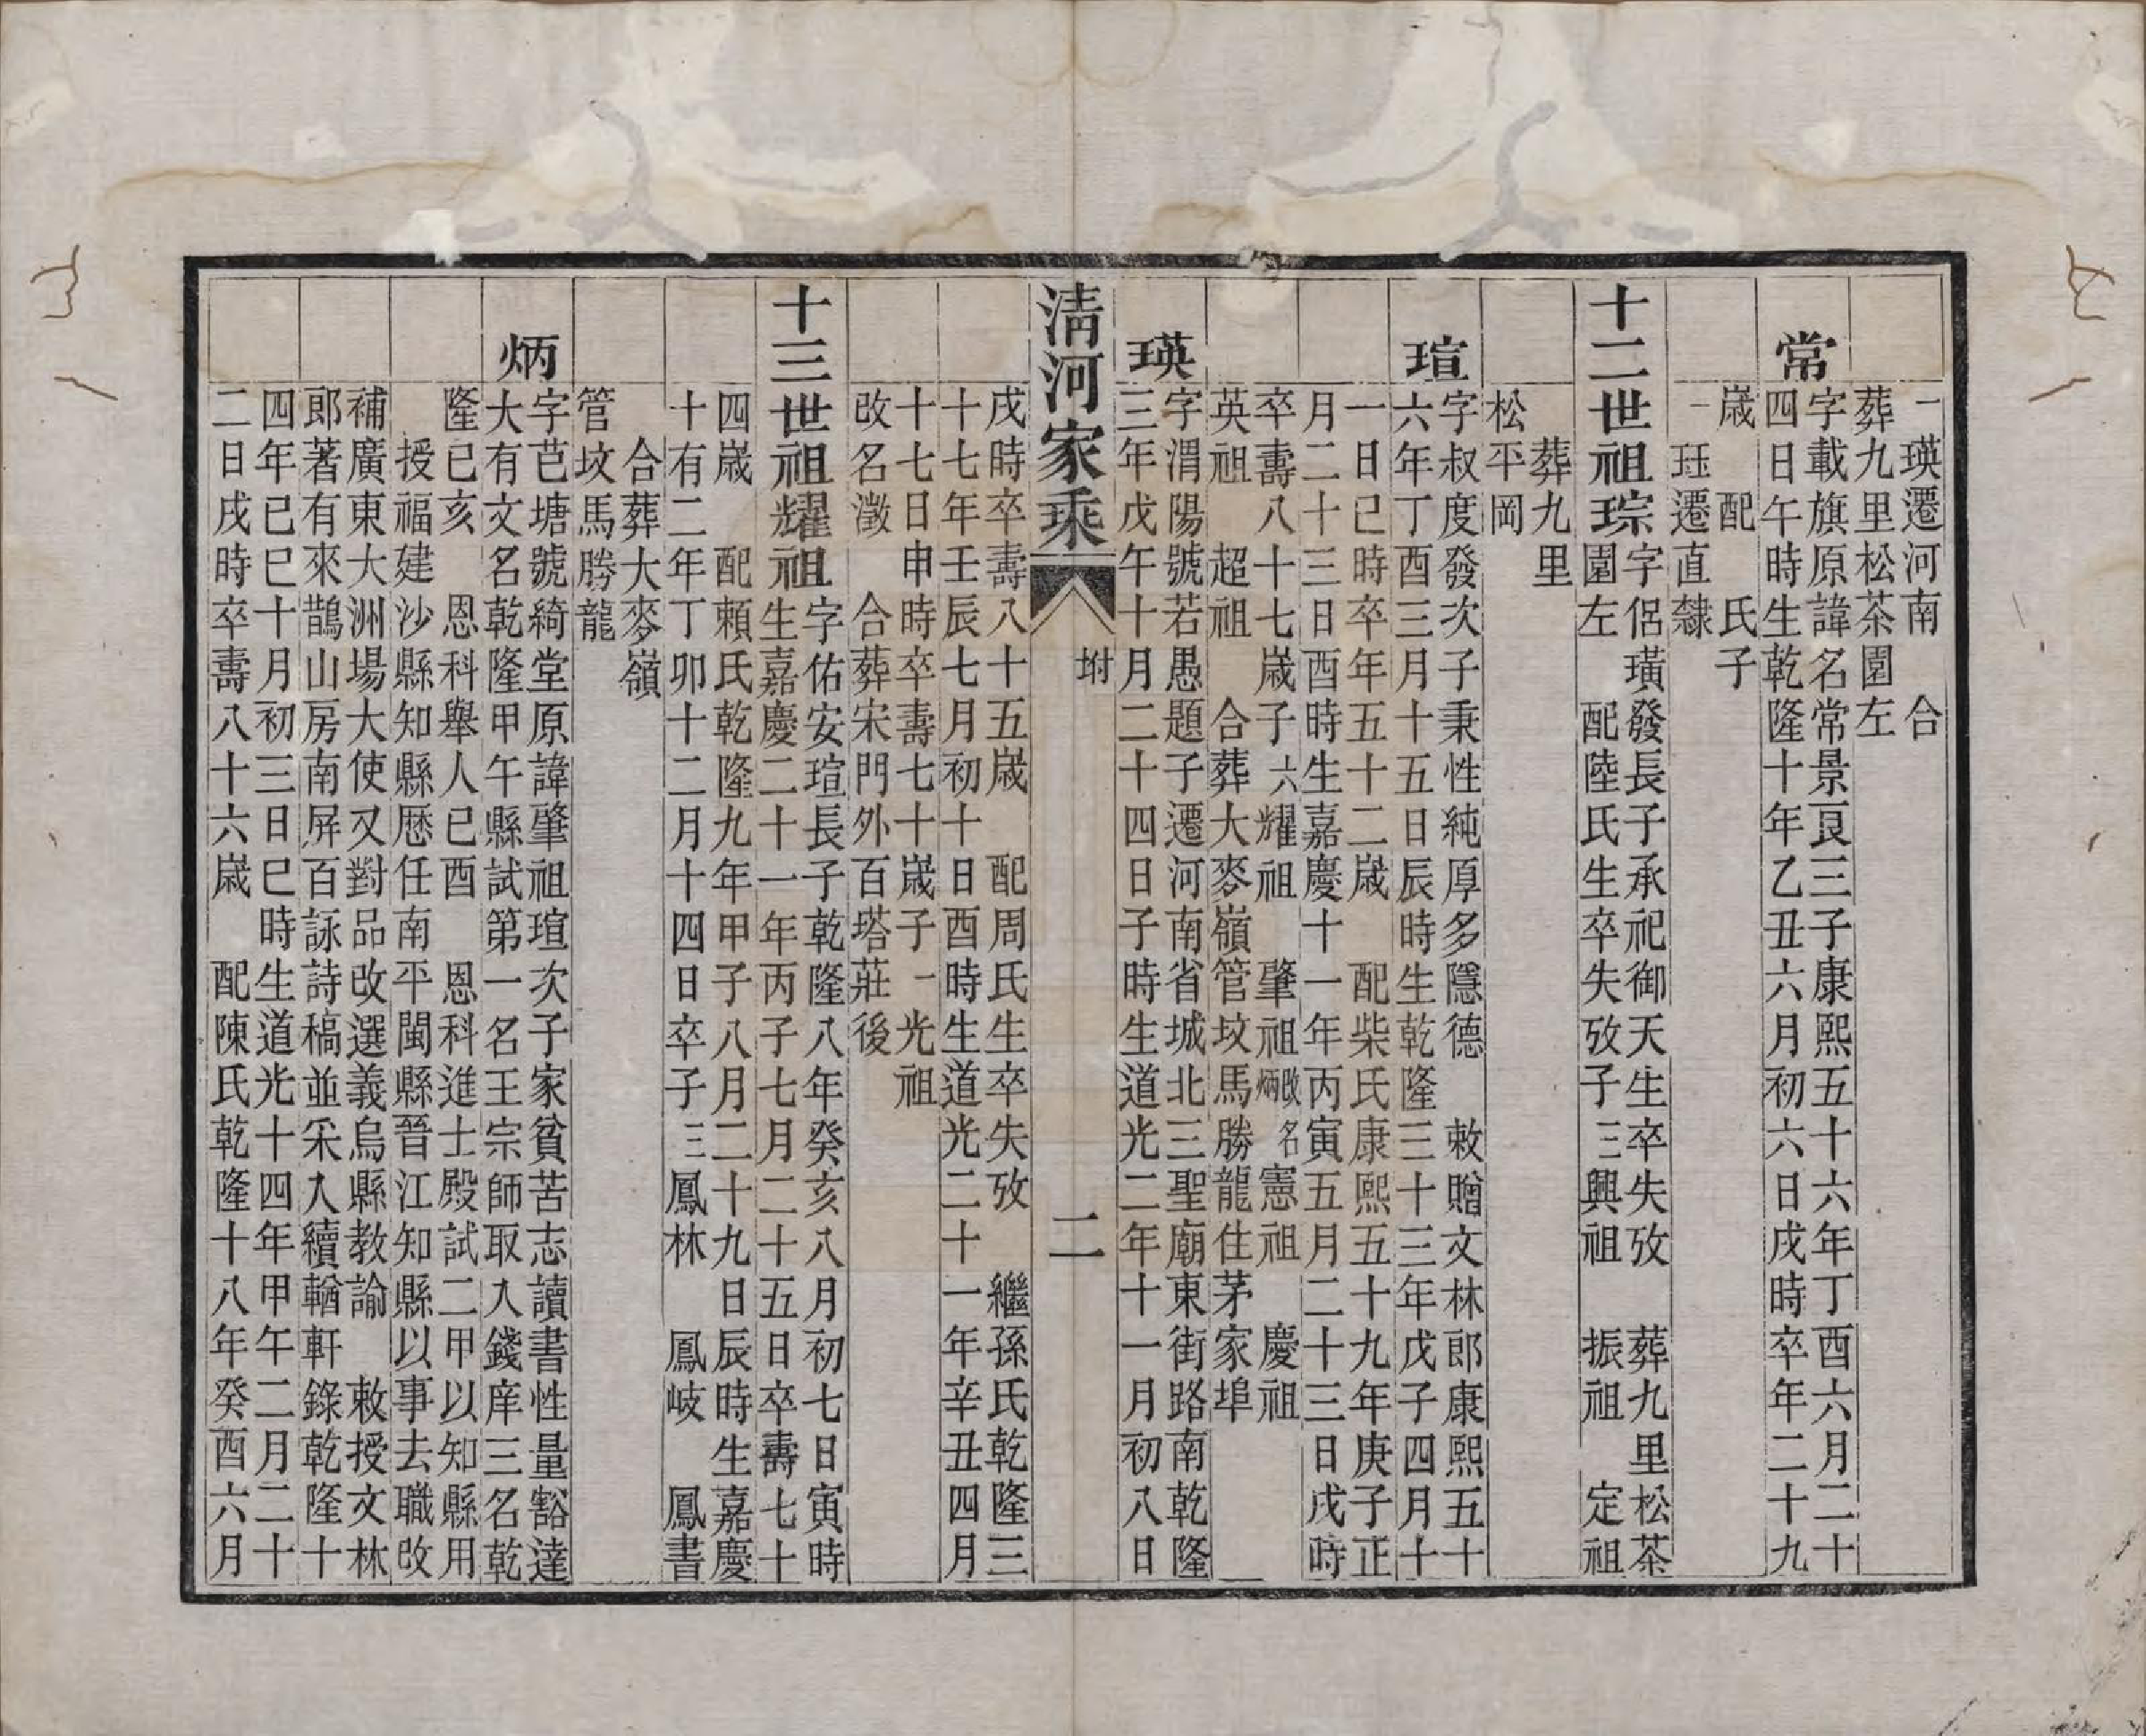 一 瑛遷河南 合
葬九里松茶園左
常
字載旗原諱名常景㫐三子康熙五十六年丁酉六月二十
四日午時生乾隆十年乙丑六月初六日戌時卒年二十九
歲 配 氏子
一 珏遷直隸
十二世祖琮
字侶璜發長子承祀御天生卒失攷 葬九里松茶
園左 配陸氏生卒失攷子三興祖 振祖 定祖
葬九里
松平岡
瑄
字叔度發次子秉性純厚多隱德 敕贈文林郎康熙五十
六年丁酉三月十五日辰時生乾隆三十三年戊子四月十
一日巳時卒年五十二歲 配柴氏康熙五十九年庚子正
月二十三日酉時生嘉慶十一年丙寅五月二十三日戌時
卒壽八十七歲子六耀祖 肇祖改名炳 憲祖 慶祖
英祖 超祖 合葬大麥嶺管坟馬勝龍住茅家埠
瑛
字渭陽號若愚題子遷河南省城北三聖廟東街路南乾隆
三年戊午十月二十四日子時生道光二年十一月初八日
清河家乘 坿 二
戌時卒壽八十五歲 配周氏生卒失攷 繼孫氏乾隆三
十七年壬辰七月初十日酉時生道光二十一年辛丑四月
十七日申時卒壽七十歲子一光祖
改名瀓 合葬宋門外百塔莊後
十三世祖耀祖
字佑安瑄長子乾隆八年癸亥八月初七日寅時
生嘉慶二十一年丙子七月二十五日卒壽七十
四歲 配賴氏乾隆九年甲子八月二十九日辰時生嘉慶
十有二年丁卯十二月十四日卒子三鳳林 鳳岐 鳳書
合葬大麥嶺
管坟馬勝龍
炳
字芭塘號綺堂原諱肇祖瑄次子家貧苦志讀書性量豁達
大有文名乾隆甲午縣試第一名王宗師取入錢庠三名乾
隆己亥 恩科舉人己酉 恩科進士殿試二甲以知縣用
授福建沙縣知縣歷任南平閩縣晉江知縣以事去職改
補廣東大洲場大使又對品改選義烏縣教諭 敕授文林
郎著有來鵲山房南屏百詠詩稿並采入續輶軒錄乾隆十
四年己巳十月初三日巳時生道光十四年甲午二月二十
二日戌時卒壽八十六歲 配陳氏乾隆十八年癸酉六月